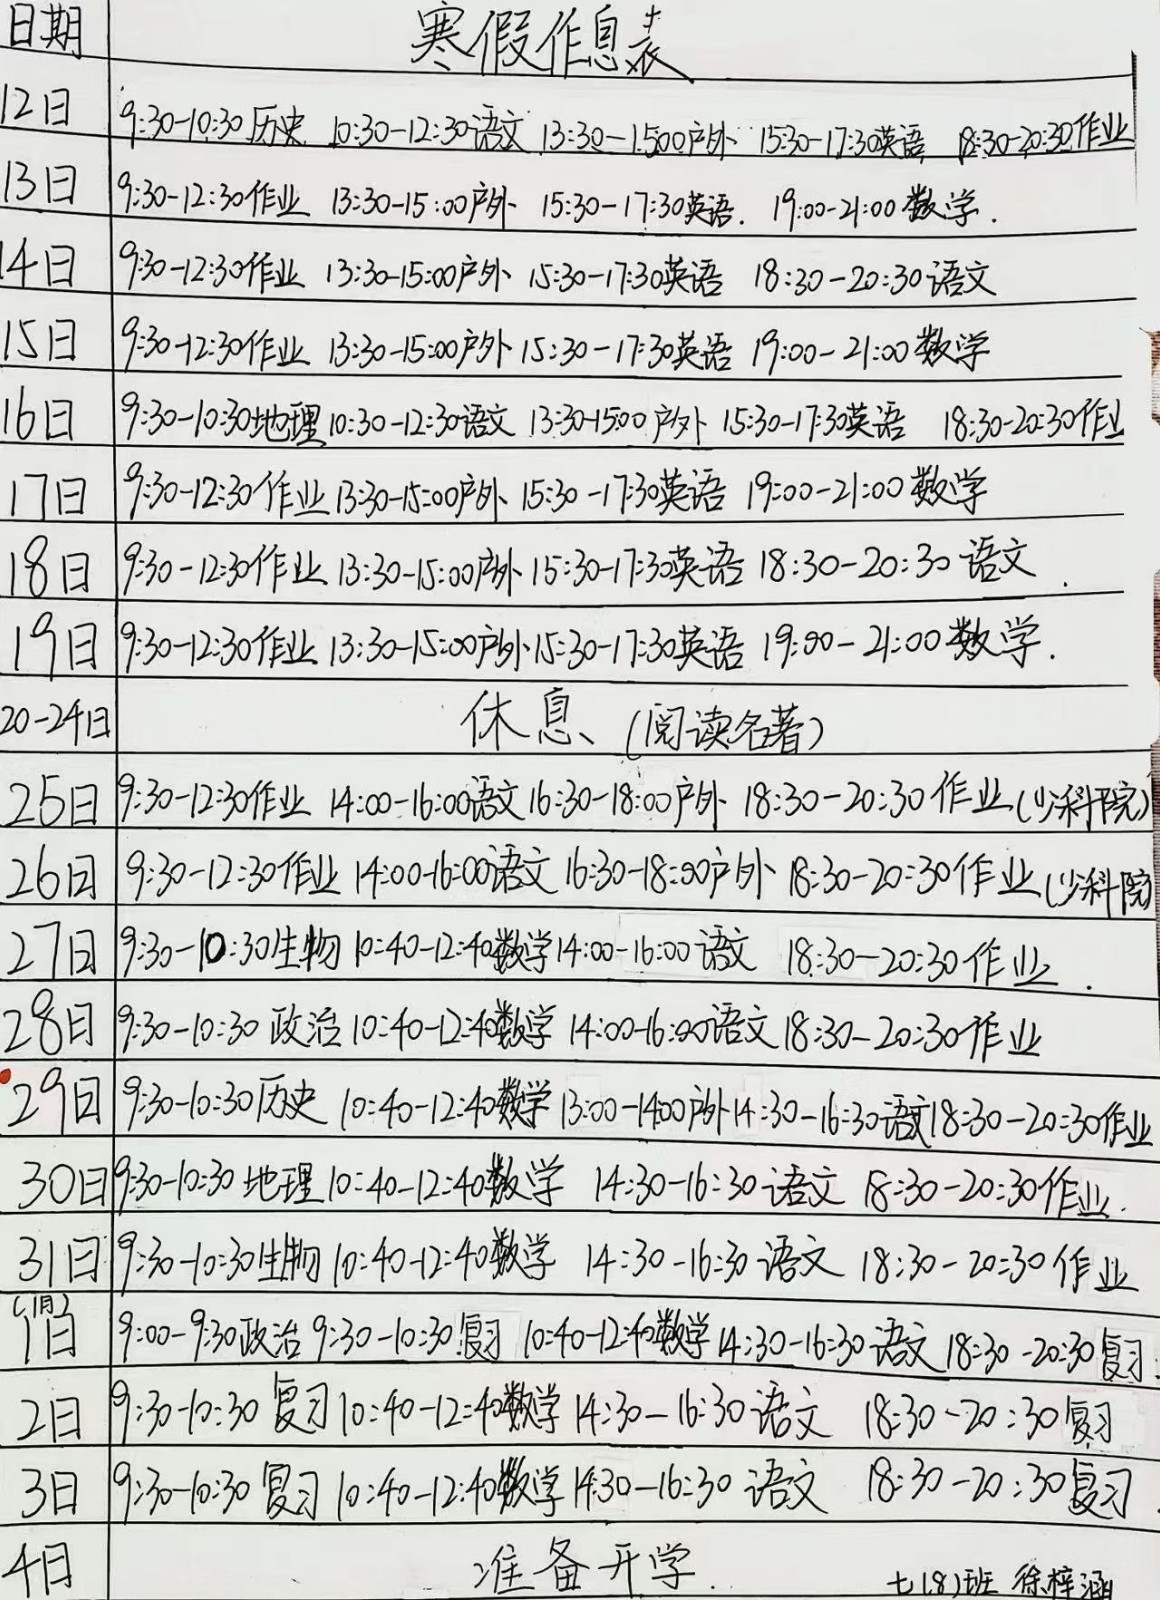 日期 寒假作息表
12日 9:30-10:30历史 10:30-12:30语文 13:30-15:00户外 15:30-17:30英语 18:30-20:30作业
13日 9:30-12:30作业 13:30-15:00户外 15:30-17:30英语. 19:00-21:00数学.
14日 9:30-12:30作业 13:30-15:00户外 15:30-17:30英语 18:30-20:30语文
15日 9:30-12:30作业 13:30-15:00户外 15:30-17:30英语 19:00-21:00数学
16日 9:30-10:30地理 10:30-12:30语文 13:30-15:00户外 15:30-17:30英语 18:30-20:30作业
17日 9:30-12:30作业 13:30-15:00户外 15:30-17:30英语 19:00-21:00数学
18日 9:30-12:30作业 13:30-15:00户外 15:30-17:30英语 18:30-20:30语文.
19日 9:30-12:30作业 13:30-15:00户外 15:30-17:30英语 19:00-21:00数学.
20-24日 休息(阅读名著)
25日 9:30-12:30作业 14:00-16:00语文 16:30-18:00户外 18:30-20:30作业(少科院)
26日 9:30-12:30作业 14:00-16:00语文 16:30-18:00户外 18:30-20:30作业(少科院)
27日 9:30-10:30生物 10:40-12:40数学 14:00-16:00语文 18:30-20:30作业.
28日 9:30-10:30政治 10:40-12:40数学 14:00-16:00语文 18:30-20:30作业
29日 9:30-10:30历史 10:40-12:40数学 13:00-14:00户外 14:30-16:30语文 18:30-20:30作业
30日 9:30-10:30地理 10:40-12:40数学 14:30-16:30语文 18:30-20:30作业.
31日 9:30-10:30生物 10:40-12:40数学 14:30-16:30语文 18:30-20:30作业
(1月)
1日 9:00-9:30政治 9:30-10:30复习 10:40-12:40数学 14:30-16:30语文 18:30-20:30复习.
2日 9:30-10:30复习 10:40-12:40数学 14:30-16:30语文 18:30-20:30复习
3日 9:30-10:30复习 10:40-12:40数学 14:30-16:30语文 18:30-20:30复习.
4日 准备开学.
七(8)班 徐梓涵